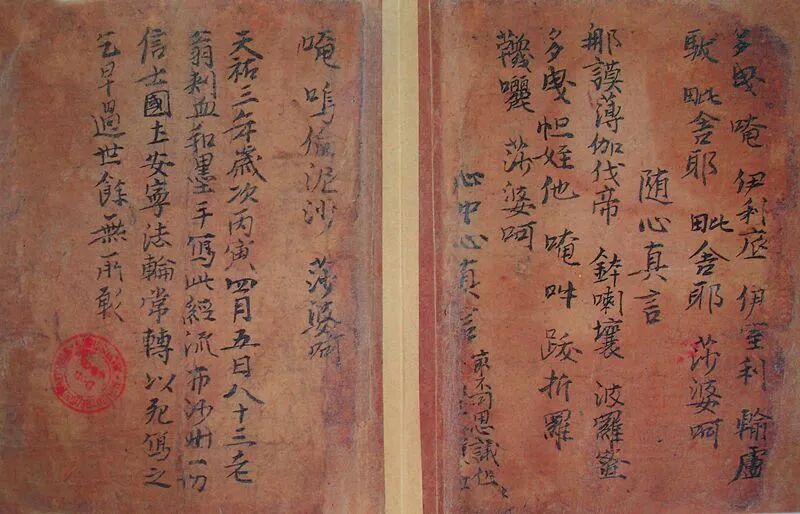 多曳 唵 伊利底 伊室利 輸盧
馱 毗舍耶 毗舍耶 莎婆呵
随心真言
那謨薄伽伐帝 鉢喇壤 波羅蜜
多曳 怛姪他 唵 吽 跢折羅
莎婆呵
心中心真言
不可思議
唵 嗚倫泥沙 莎婆呵
天祐三年歲次丙寅四月五日八十三老
翁刺血和墨手寫此經流布沙州一切
信士國土安寧法輪常轉以死寫之
乞早過世餘無所彰